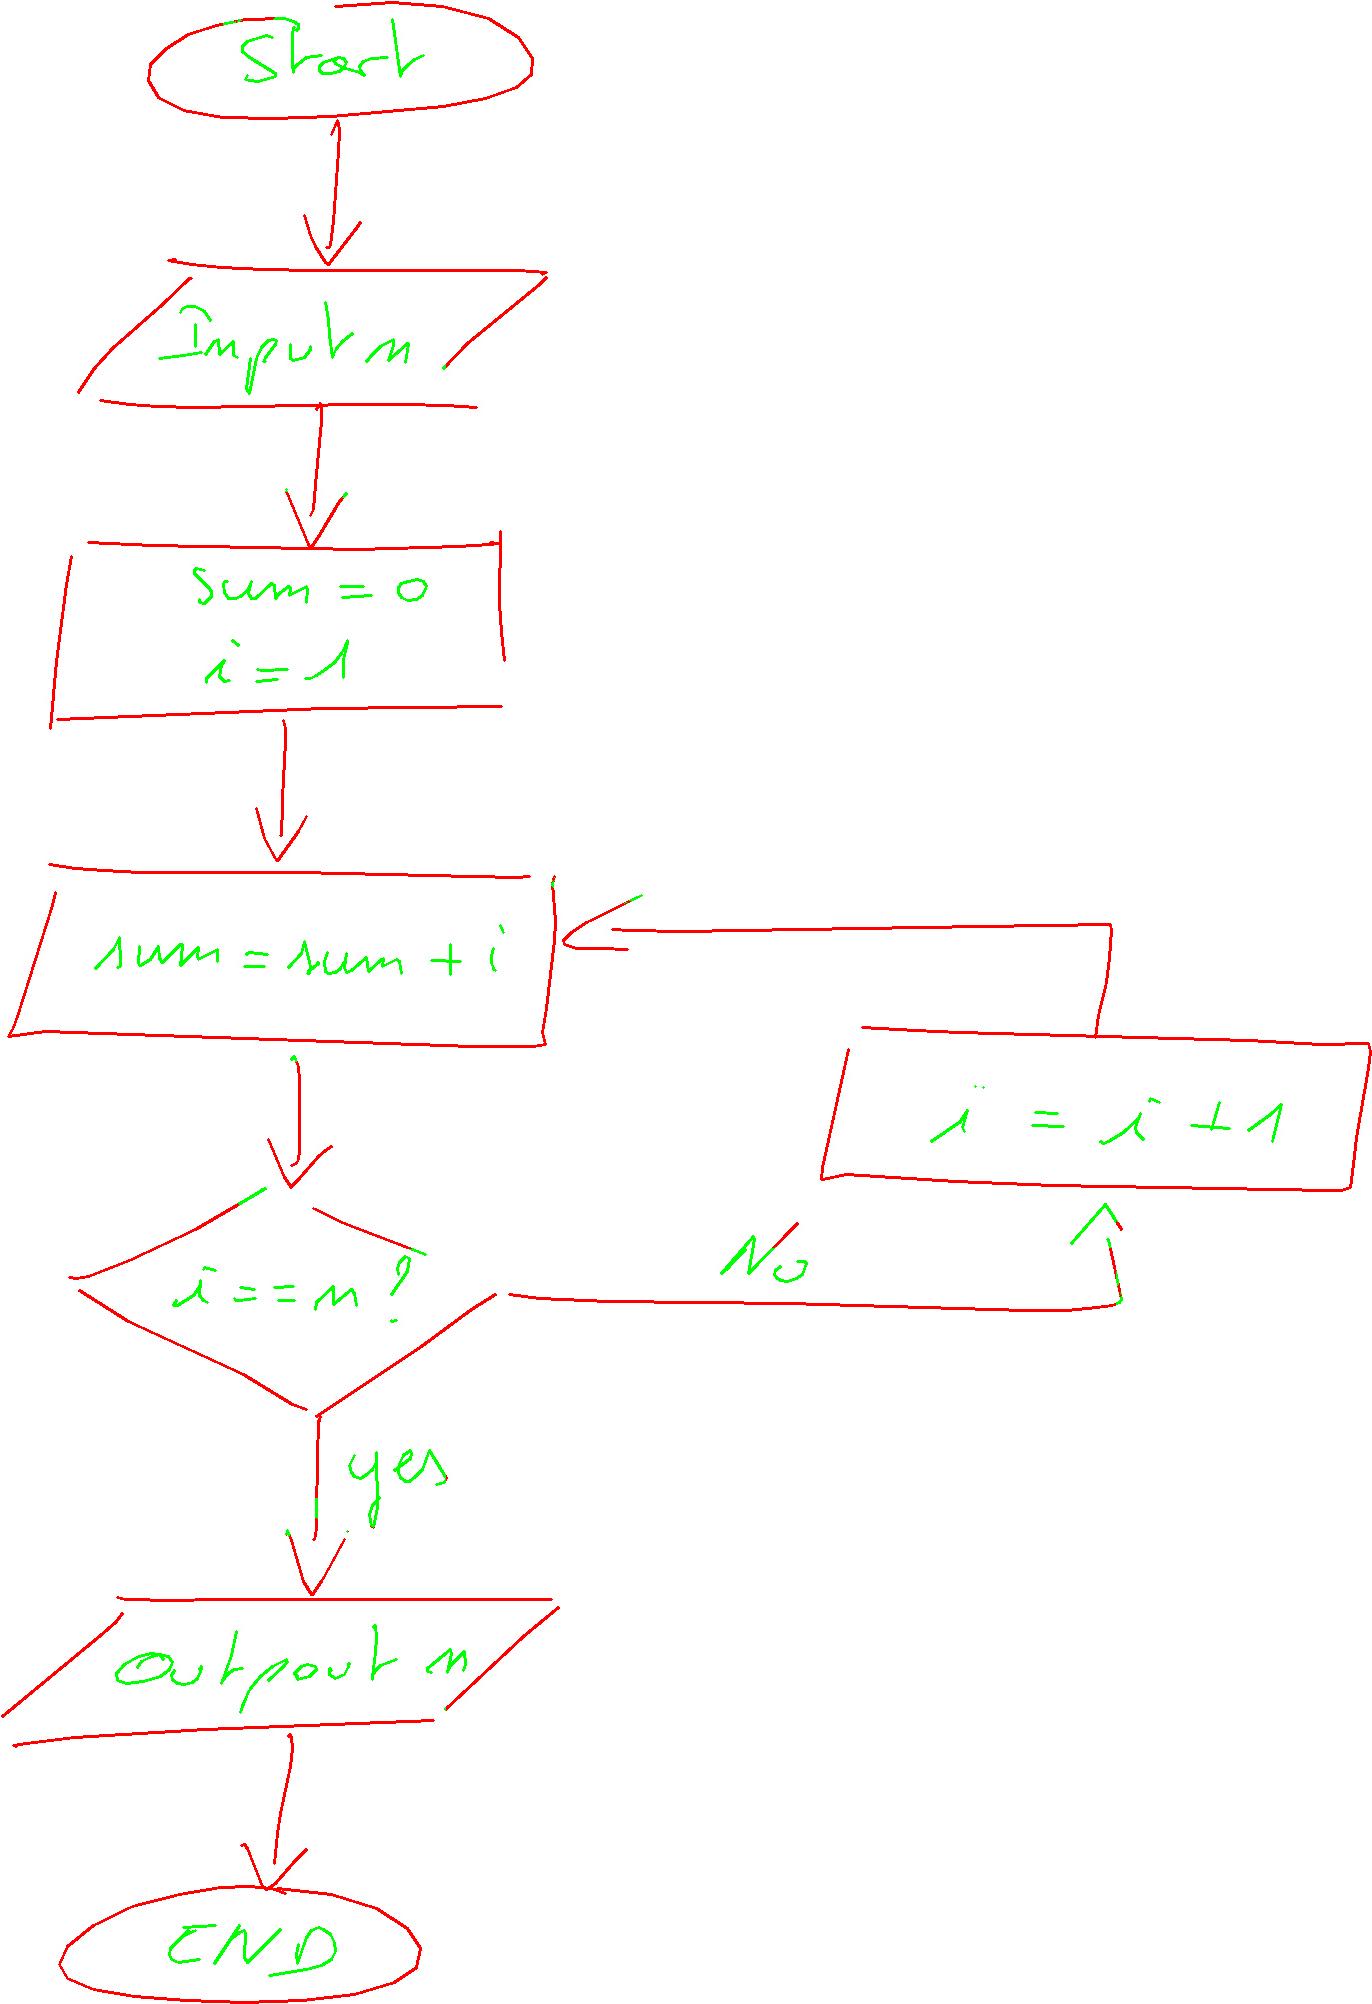 Start
Input n
sum = 0
i = 1
sum = sum + i
i = i + 1
No
i == n ?
yes
Outpout n
END